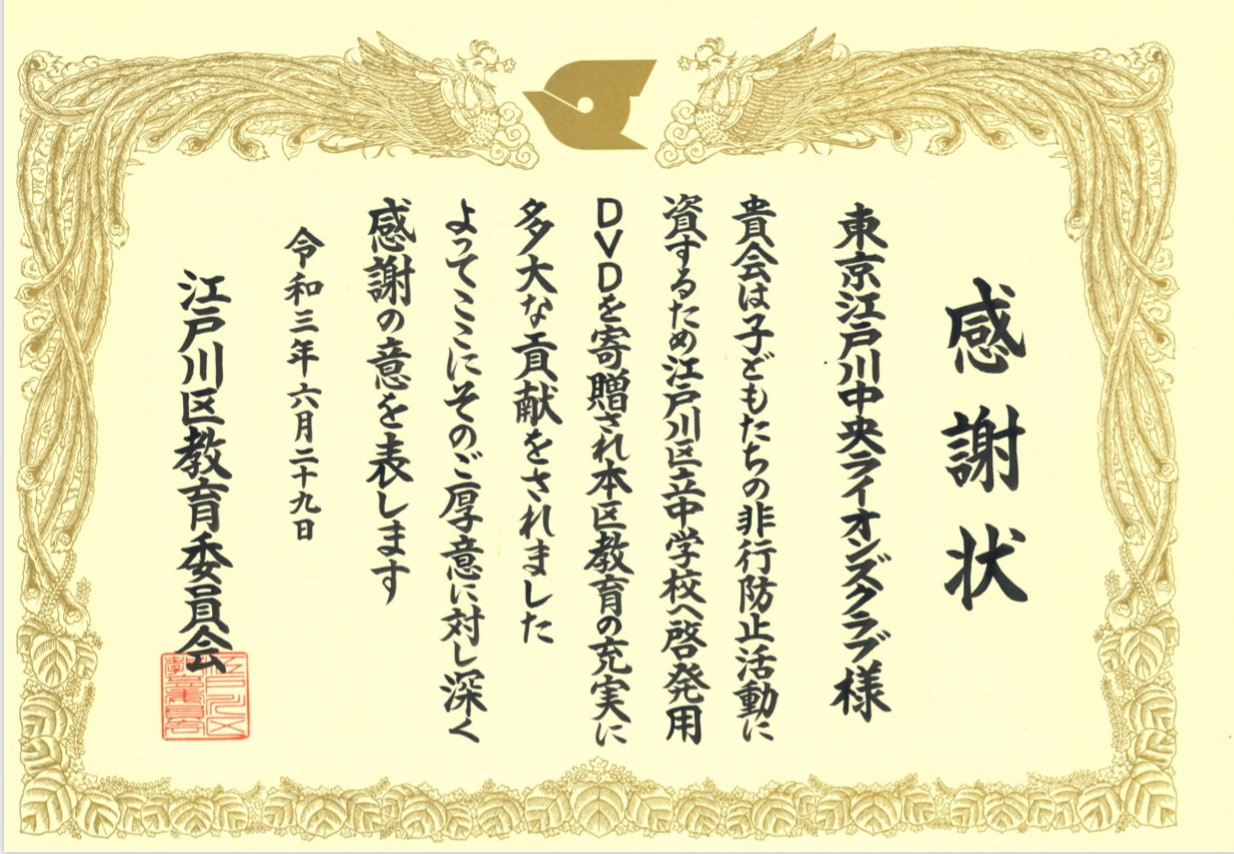 感謝状
東京江戸川中央ライオンズクラブ様
貴会は子どもたちの非行防止活動に
資するため江戸川区立中学校へ啓発用
DVDを寄贈され本区教育の充実に
多大な貢献をされました
よってここにそのご厚意に対し深く
感謝の意を表します
令和三年六月二十九日
江戸川区教育委員会